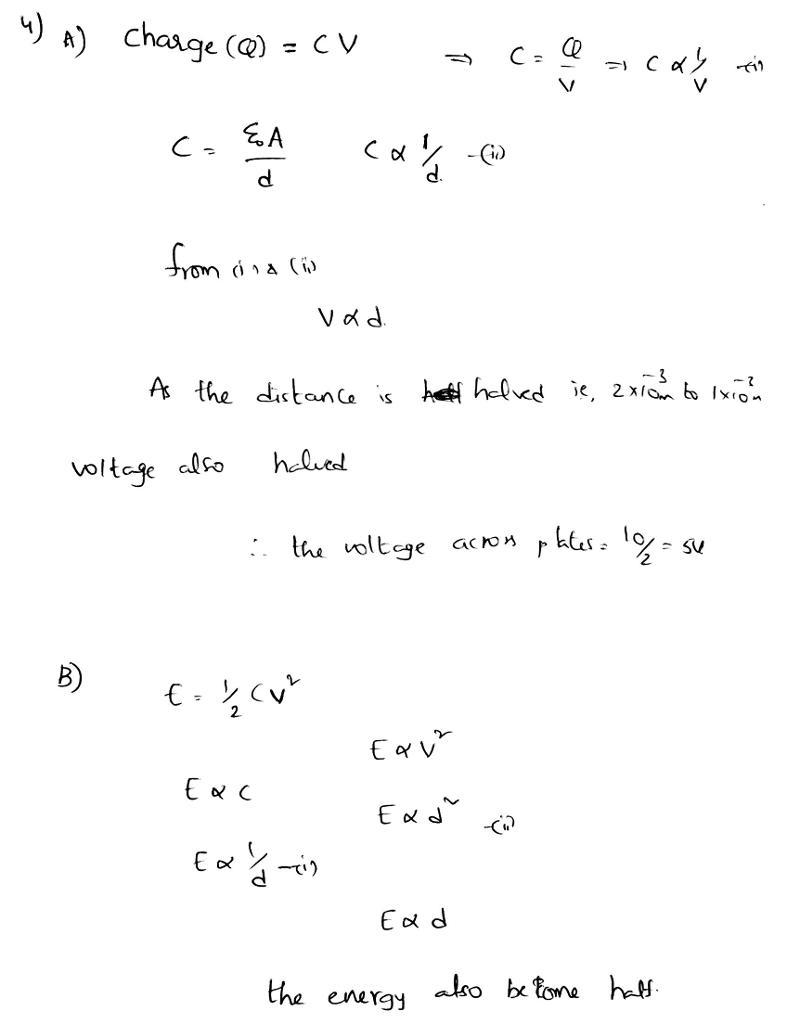 4) A) Charge (Q) = CV ⇒ C = Q/V ⇒ C α 1/V -(i)
C = ε₀A/d C α 1/d. -(ii)
from (i) & (ii)
V α d.
As the distance is halved ie, 2x10⁻³m to 1x10⁻³m
voltage also halved
∴ the voltage across plates = 10/2 = 5V
B) E = 1/2 CV²
E α V²
E α C
E α d² -(ii)
E α 1/d -(i)
E α d
the energy also become half.